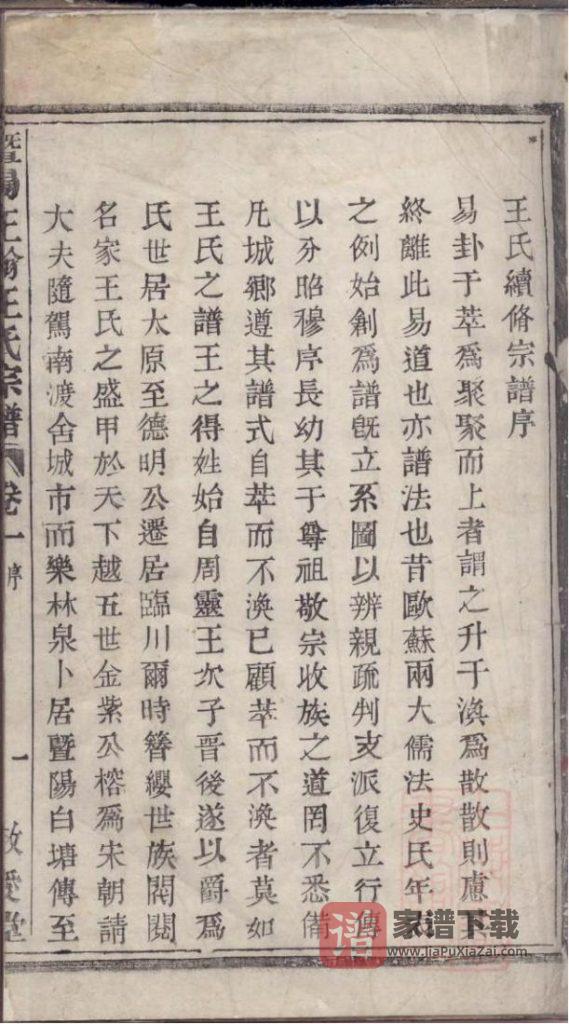 王氏續脩宗譜序
易卦于萃爲聚聚而上者謂之升于渙爲散散則慮
終離此易道也亦譜法也昔歐蘇兩大儒法史氏年
之例始創爲譜旣立系圖以辨親疏判支派復立行傳
以分昭穆序長幼其于尊祖敬宗收族之道罔不悉備
凡城鄉遵其譜式自萃而不渙已顧萃而不渙者莫如
王氏之譜王之得姓始自周靈王次子晉後遂以爵爲
氏世居太原至德明公遷居臨川爾時簪纓世族閥閱
名家王氏之盛甲於天下越五世金紫公榕爲宋朝請
大夫隨駕南渡舍城市而樂林泉卜居暨陽白塘傳至
暨陽 王氏宗譜 卷一 序 一 敘愛堂
譜 家谱下载
www.jiapuxiazai.com